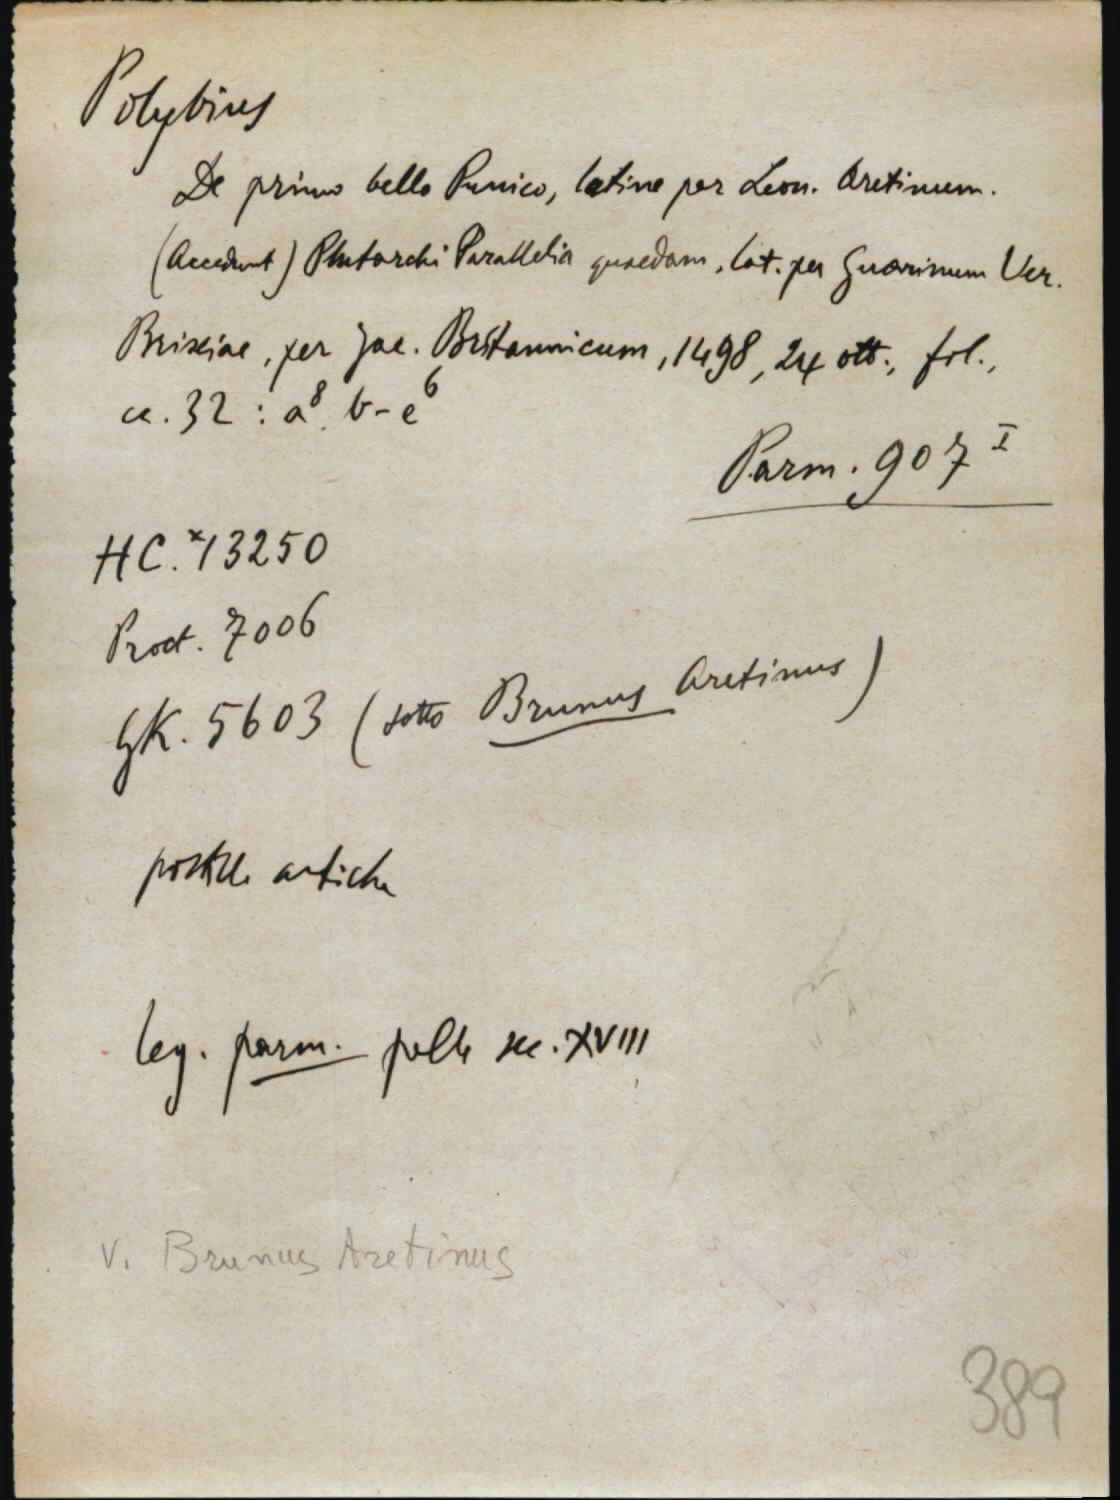 Polybius
De primo bello Punico, latine per Leon. Aretinum.
(Accedunt) Plutarchi Parallelia quaedam, lat. per Guarinum Ver.
Brixiae, per Jac. Britannicum, 1498, 24 ott., fol.,
cc. 32 : a⁸ b-e⁶
Parm. 907 I
HC. *13250
Proct. 7006
GK. 5603 (sotto Brunus Aretinus)
postille antiche
leg. parm. pelle sec. XVIII
v. Brunus Aretinus
389